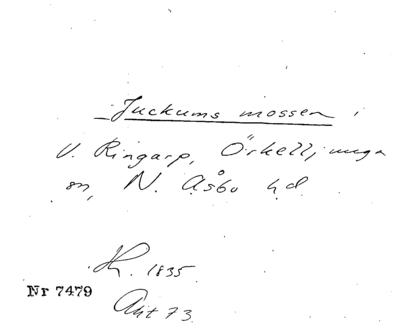 Juckums mossen,
V. Ringarp, Örkelljunga
sn, N. Åsbo hd
H. 1835
Nr 7479
Akt 73